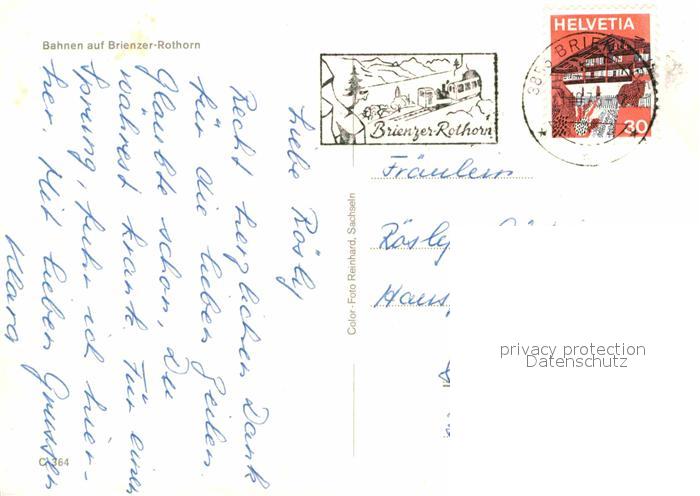 Bahnen auf Brienzer-Rothorn
HELVETIA
30
3855 BRIENZ
Brienzer-Rothorn
Liebe Rösly
Recht herzlichen Dank
für die lieben Zeilen.
Glaubte schon, Du
währest krank. Für einen
Sprung, fuhr ich hier-
her. Mit lieben Grüssen
Klara
Color-Foto Reinhard, Sachseln
Fräulein
Rösly
Haus
privacy protection
Datenschutz
C 364